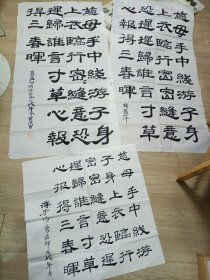 慈母手中线游子身
上衣臨行密密縫意恐
遲遲歸誰言寸草心報
得三春暉
慈母手中线游子身
上衣臨行密密縫意恐
遲遲歸誰言寸草
心報得三春暉
慈母手中线游
子身上衣臨行
密密縫意恐遲
遲歸誰言寸草
心報得三春暉